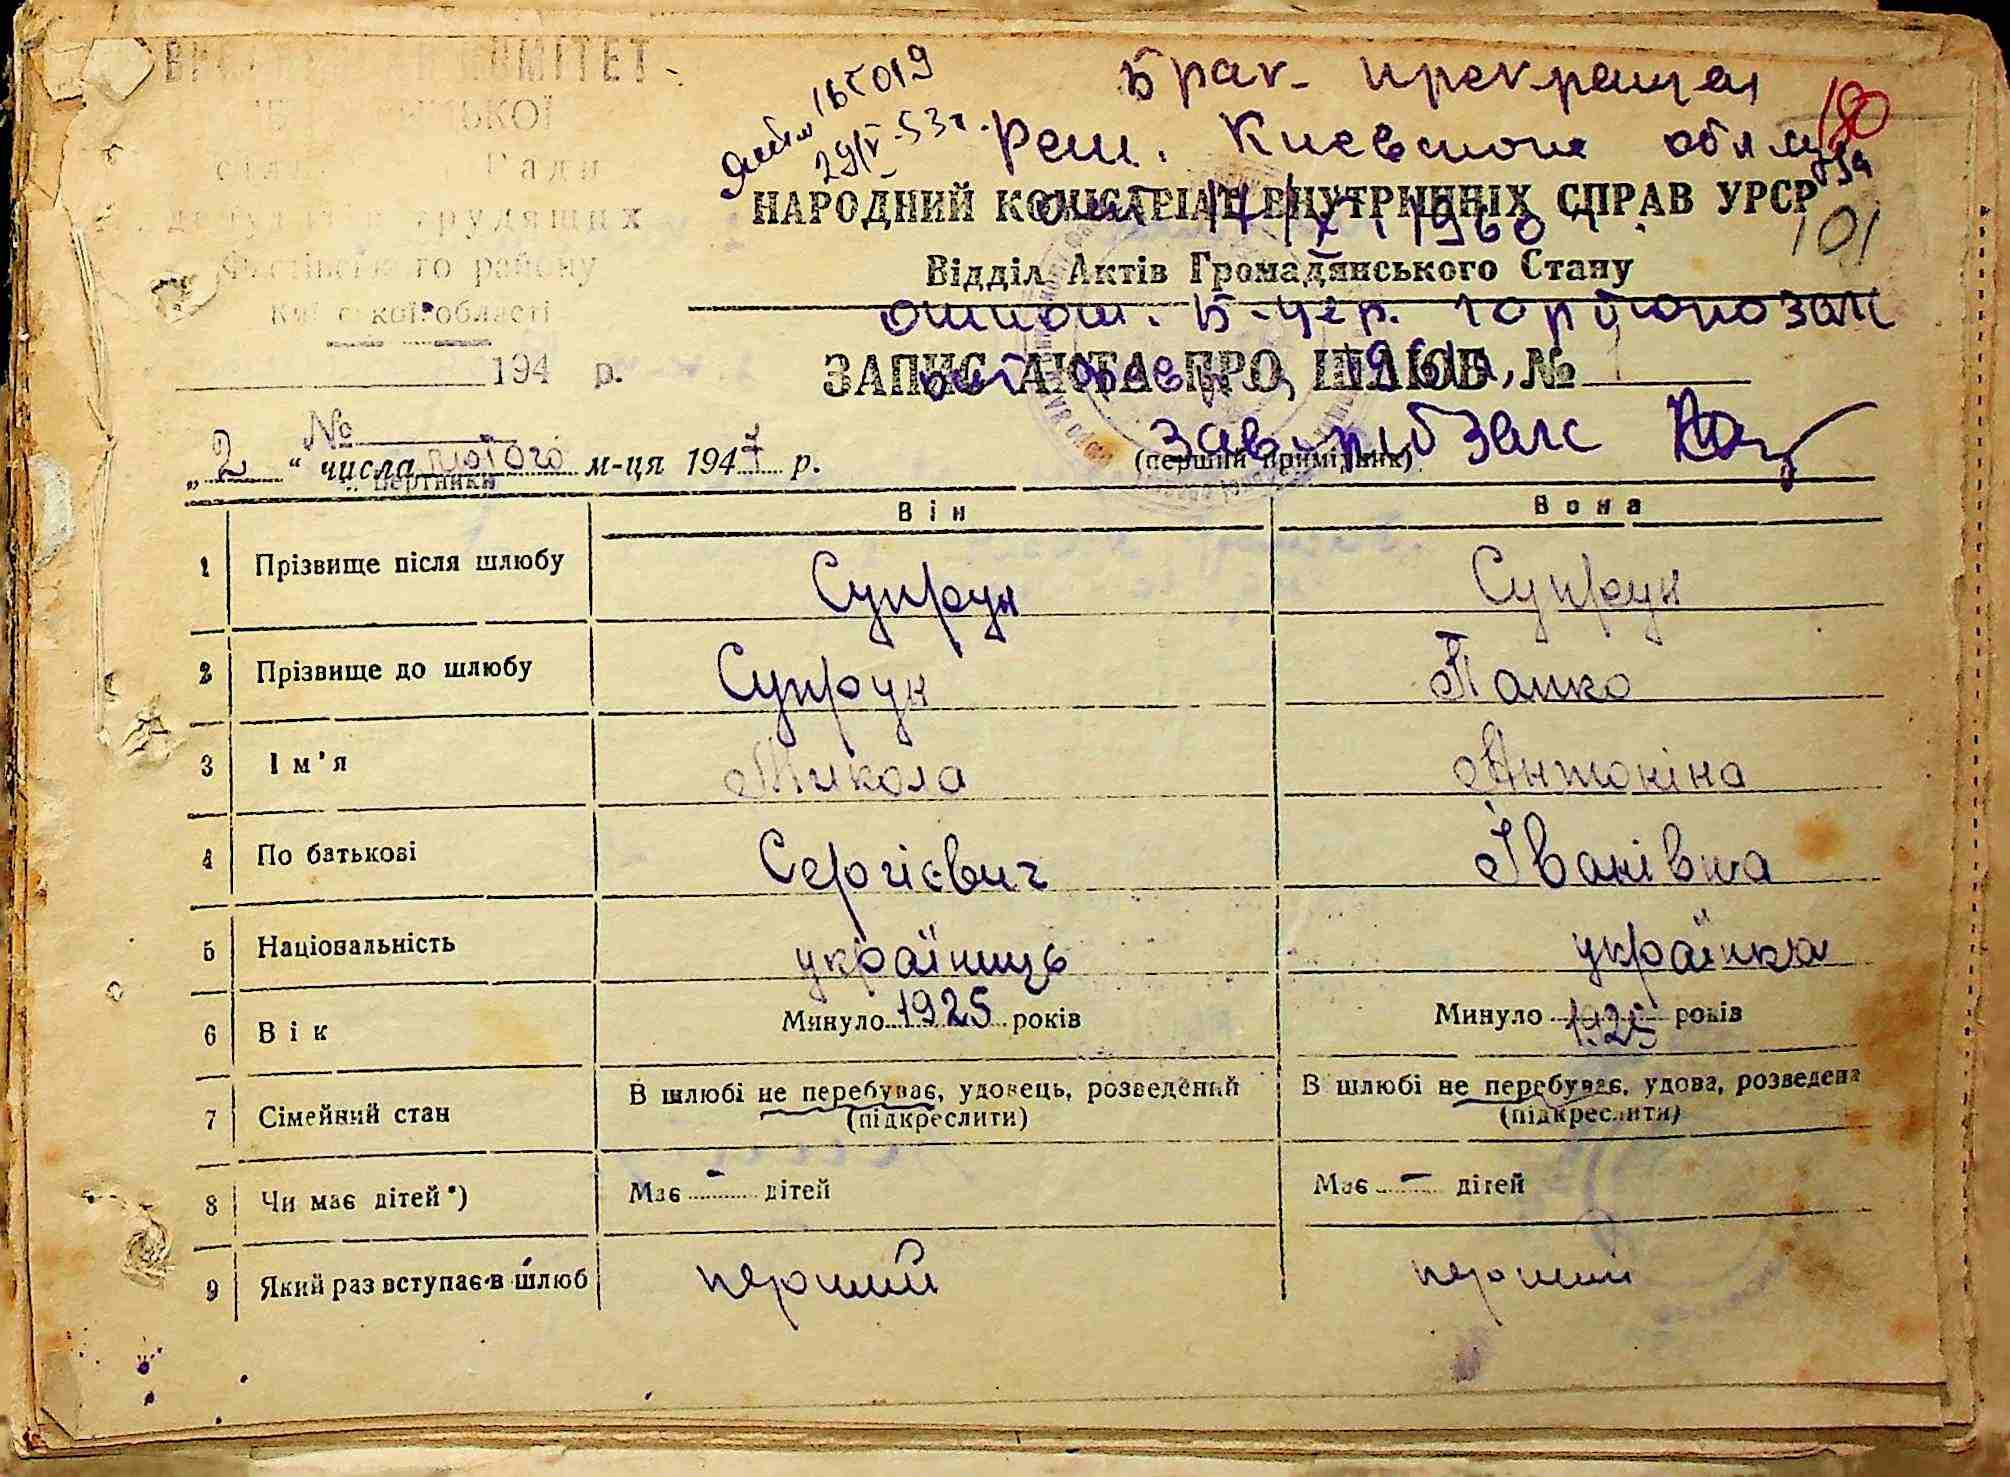 КОМІТЕТ
Ради
трудящих
району
області
194 р.
ІБГ 019
29/V-53г.
Брак прекращен
Реш. Киевского обл суда
от 1960
180
101
НАРОДНИЙ КОМІСАРІАТ ВНУТРІШНІХ СПРАВ УРСР
Відділ Актів Громадянського Стану
ЗАПИС АКТА ПРО ШЛЮБ № 1
№
„ 2 “ числа лютого м-ця 1947 р.
(перший примірник)
Він Вона
1 Прізвище після шлюбу Супрун Супрун
2 Прізвище до шлюбу Супрун Папко
3 Ім'я Микола Антоніна
4 По батькові Сергієвич Іванівна
5 Національність українець українка
6 Вік Минуло 1925 років Минуло 1925 років
7 Сімейний стан В шлюбі не перебуває, удовець, розведений (підкреслити) В шлюбі не перебуває, удова, розведена (підкреслити)
8 Чи має дітей*) Має - дітей Має - дітей
9 Який раз вступає в шлюб перший перший